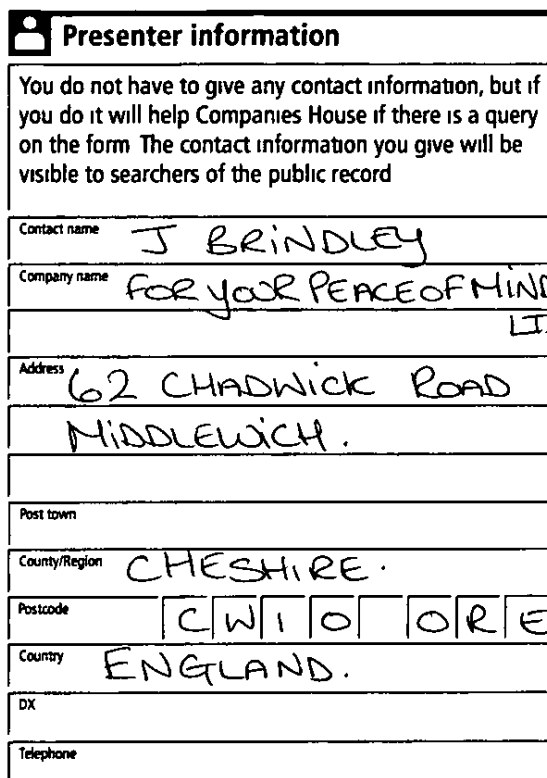 Presenter information
You do not have to give any contact information, but if
you do it will help Companies House if there is a query
on the form The contact information you give will be
visible to searchers of the public record
Contact name J BRINDLEY
Company name FOR YOUR PEACE OF MIND
Address 62 CHADWICK ROAD
MIDDLEWICH.
Post town
County/Region CHESHIRE.
Postcode CW10 0RE
Country ENGLAND.
DX
Telephone